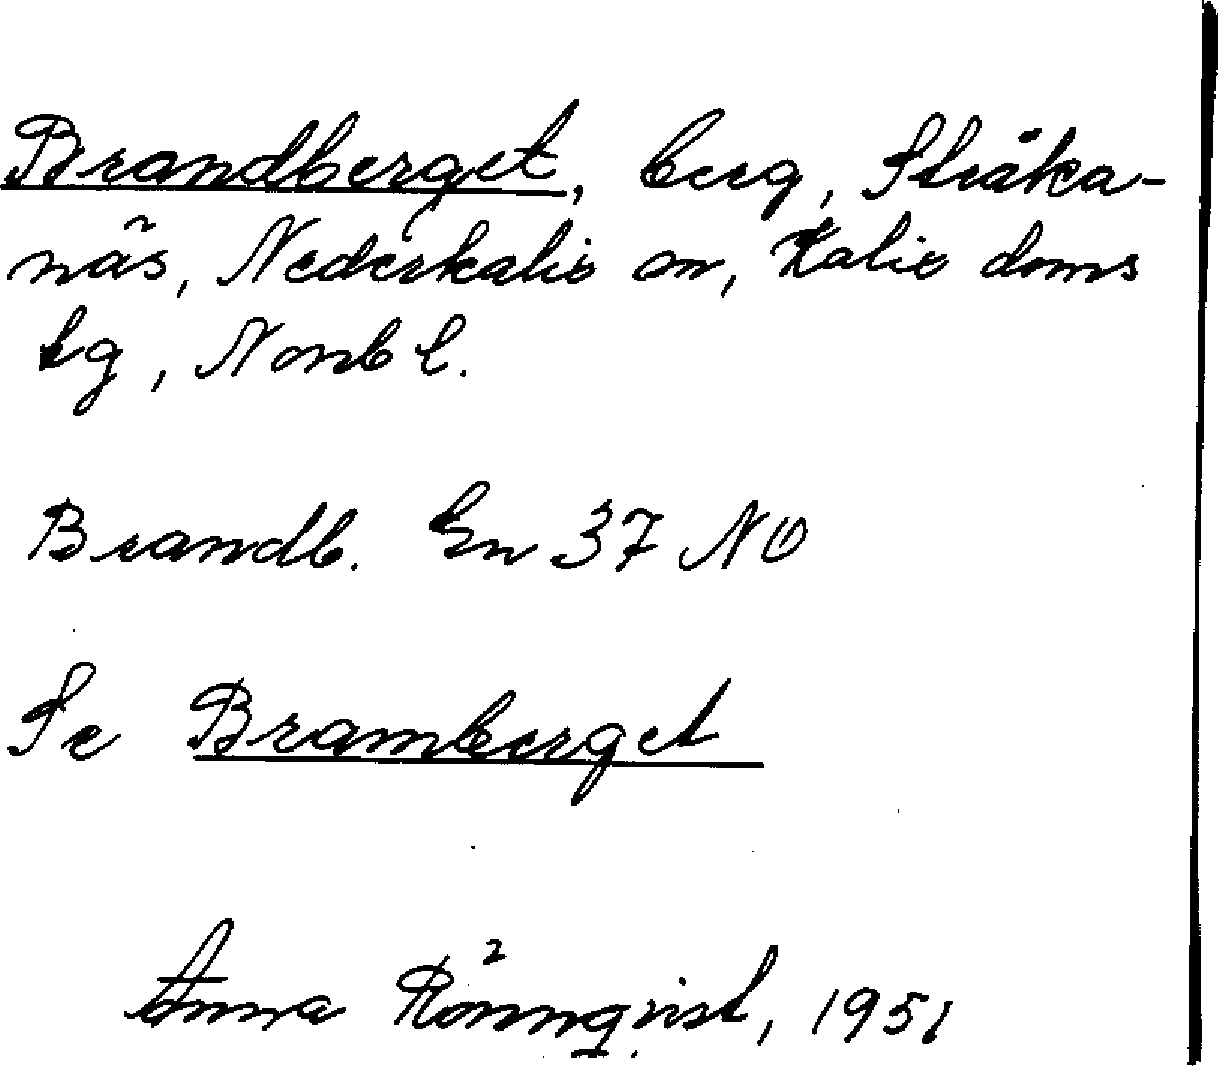 Brandberget, berg, Stråka-
näs, Nederkalix sn, Kalix doms
lg, Nonb l.
Brandb. En 37 NO
Se Bramberget
Anna Rönnqvist, 1951